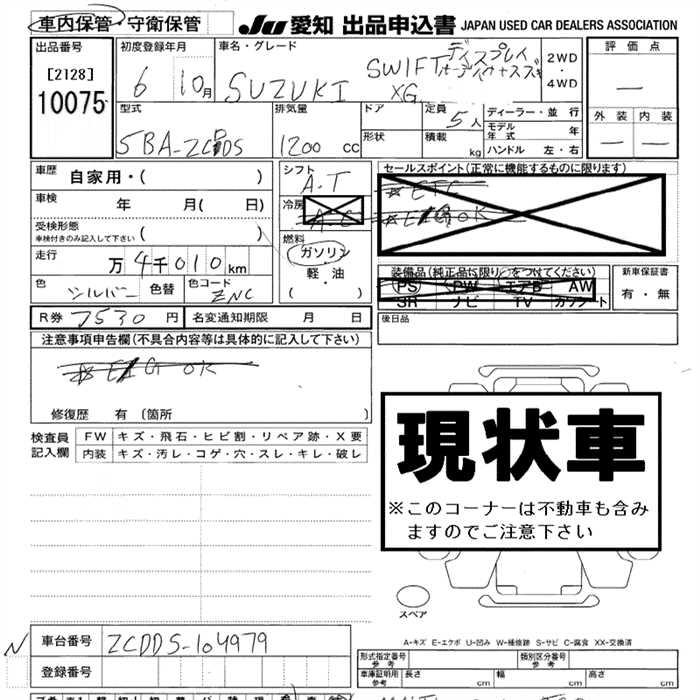 車内保管・守衛保管
JU 愛知 出品申込書 JAPAN USED CAR DEALERS ASSOCIATION
出品番号
[2128]
10075
初度登録年月
6 10月
車名・グレード
SUZUKI SWIFT
ディスプレイ
XG
2WD
・
4WD
評価点
—
外装 内装
— —
型式
排気量
1200 cc
ドア
形状
定員
5人
積載
kg
ディーラー・並行
モデル年式 年
ハンドル 左・右
車歴
自家用・( )
車検
年 月( 日)
受検形態
車検付きのみ記入して下さい
( )
走行
万4千010km
色
シルバー
色替
色コード
ZNC
シフト
A-T
冷房
A.C
燃料
ガソリン
軽・油
( ・ )
セールスポイント(正常に機能するものに限ります)
☆ETC
☆E/GOK
装備品(純正品に限り○をつけてください)
PS PW エアB AW
SR ナビ TV カワシート
新車保証書
有・無
R券 7530 円
名変通知期限 月 日
後日品
注意事項申告欄(不具合内容等は具体的に記入して下さい)
☆E/G OK
修復歴 有(箇所 )
検査員
記入欄
FW キズ・飛石・ヒビ割・リペア跡・X要
内装 キズ・汚レ・コゲ・穴・スレ・キレ・破レ
現状車
※このコーナーは不動車も含み
ますのでご注意下さい
スペア
A-キズ E-エクボ U-凹み W-補修跡 S-サビ C-腐食 XX-交換済
N
車台番号 ZCDDS-104979
登録番号
形式指定番号
参考
類別区分番号
参考
車庫証明用
参考
長さ cm 幅 cm 高さ cm